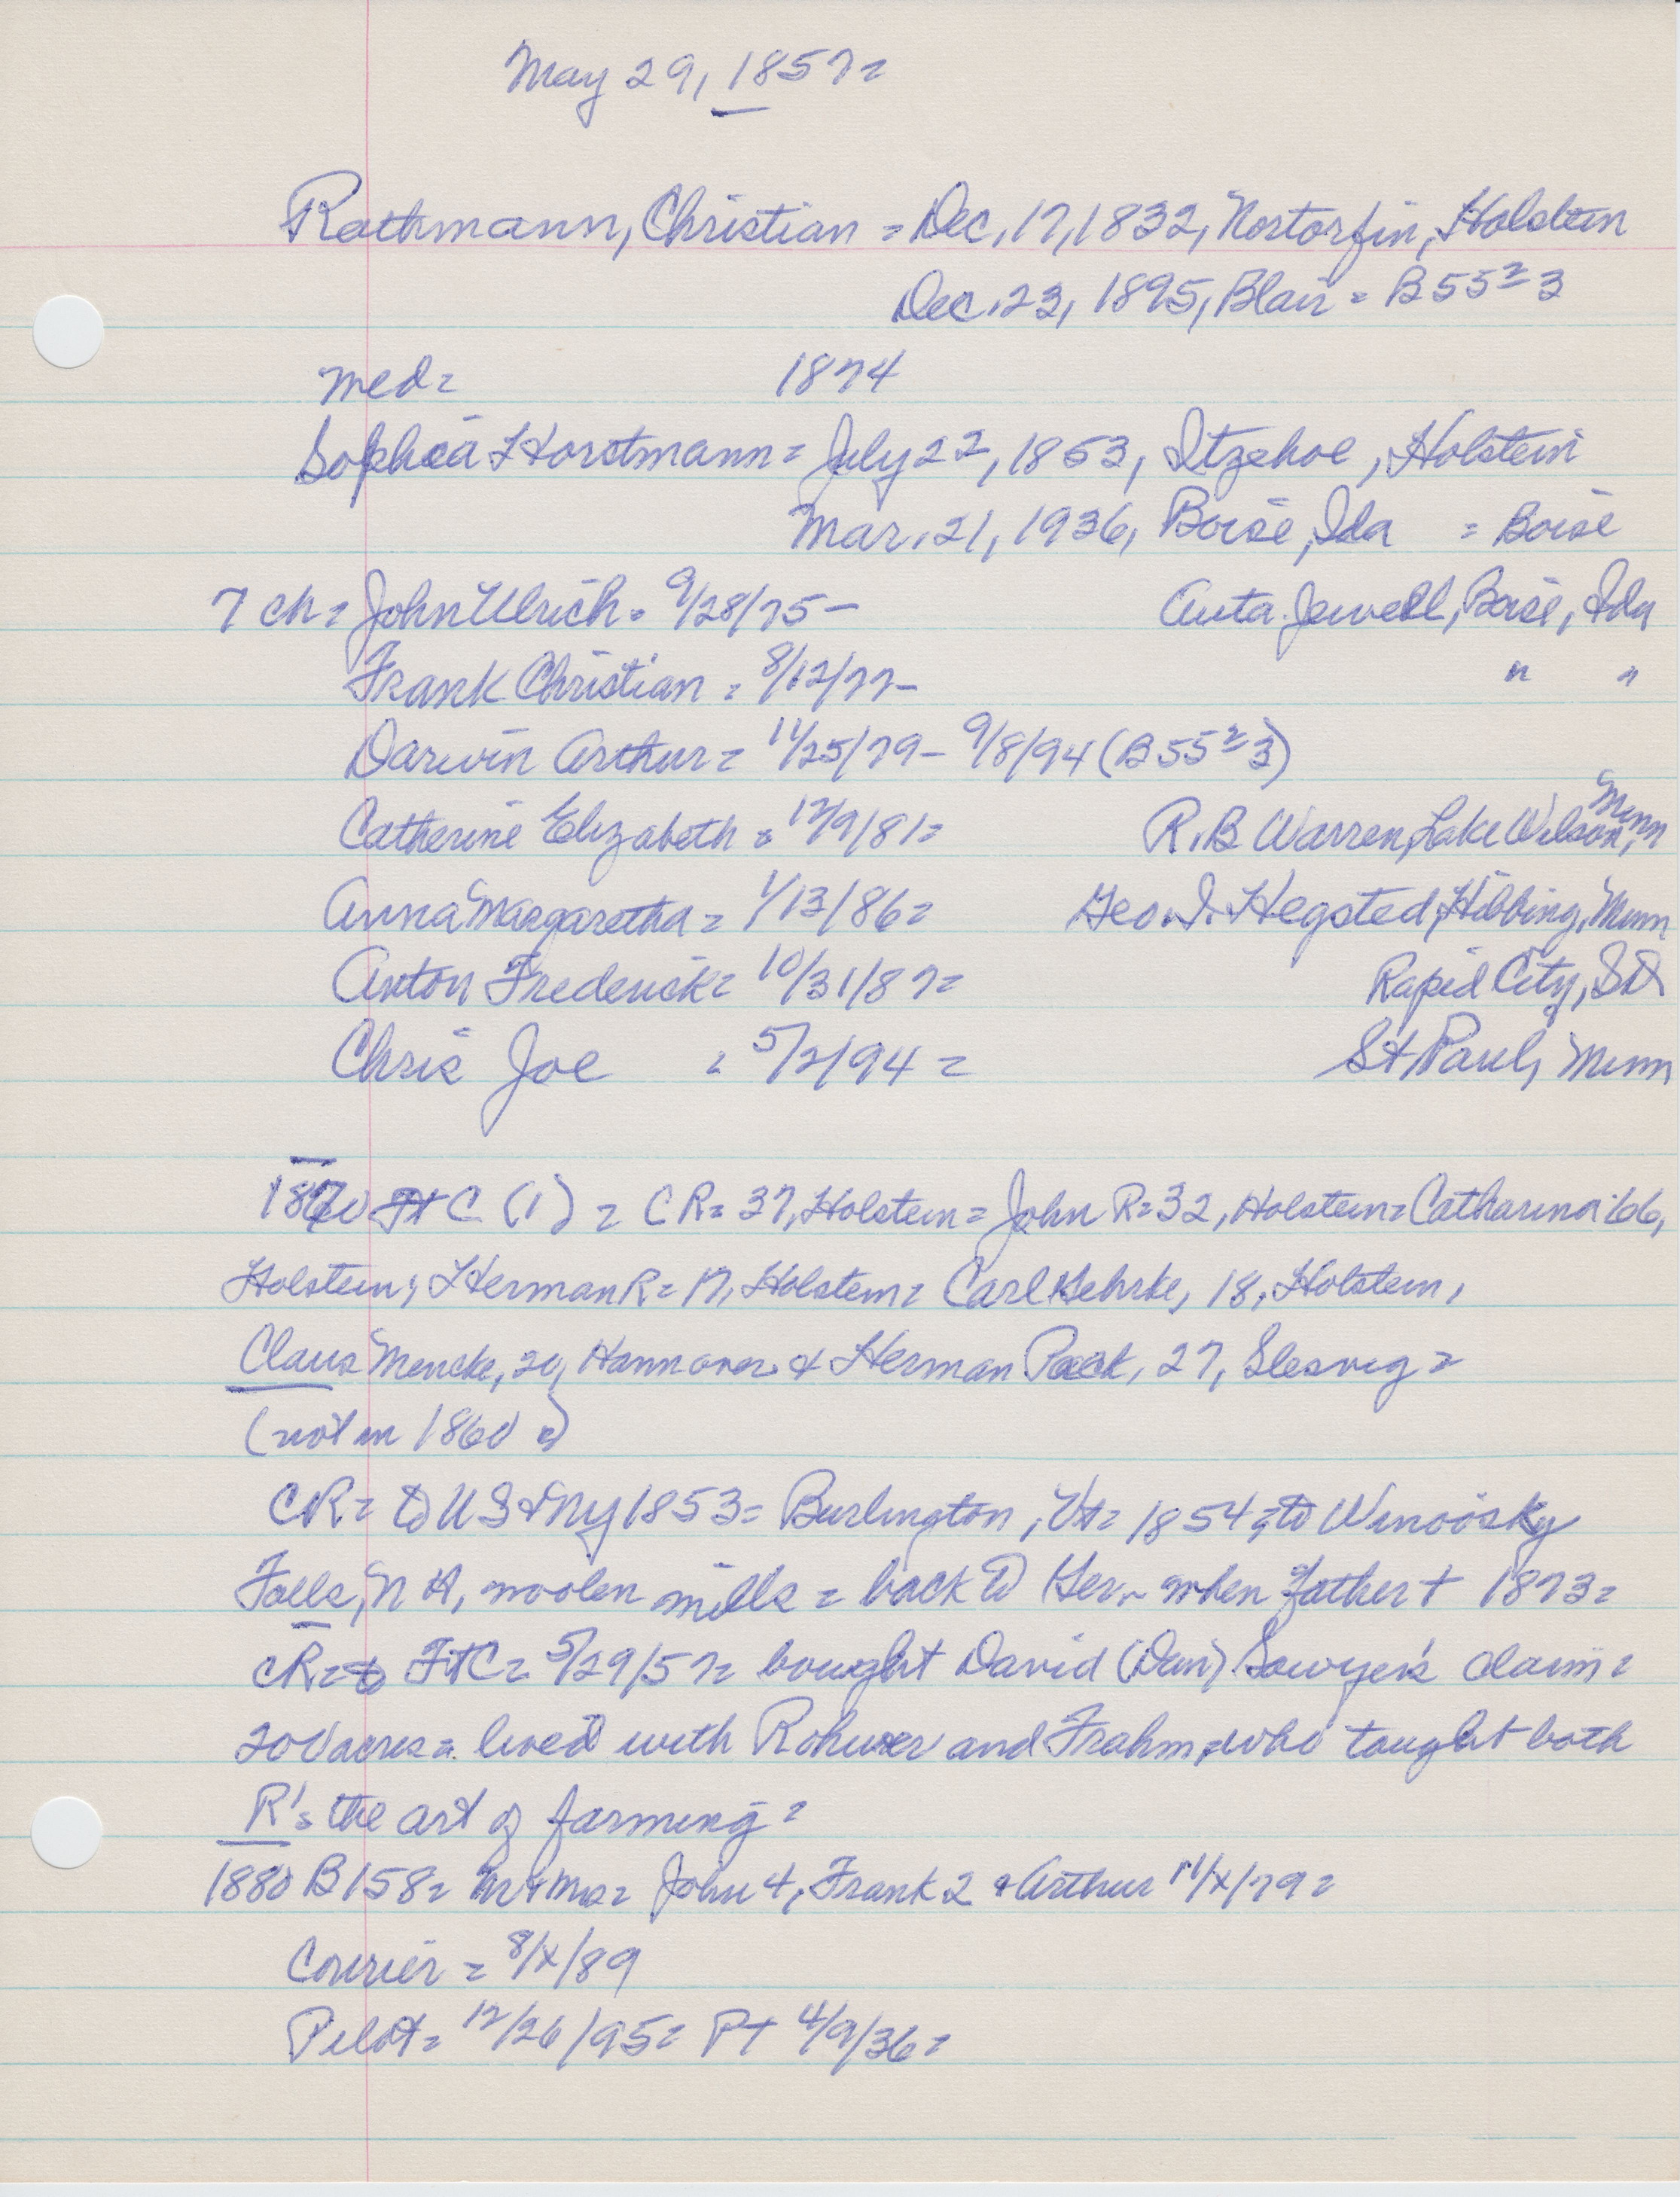 May 29, 1857=
Rathmann, Christian = Dec. 17, 1832, Nortorfin, Holstein
Dec. 23, 1895, Blair = B55²3
med= 1874
Sophia Horstmann = July 22, 1853, Itzehoe, Holstein
Mar. 21, 1936, Boise, Ida = Boise
7 ch = John Ulrich = 9/28/75 - Jewell, Boise, Ida
Frank Christian = 8/12/77- " "
Darwin Arthur = 11/25/79 - 9/8/94 (B55²3)
Catherine Elizabeth = 12/9/81= R.B Warren, Lake Wilson, Minn
Anna Margaretha = 1/13/86= Geo. I. Hegsted, Hibbing, Minn
Anton Frederick = 10/31/87= Rapid City, SD
Chris Joe = 5/2/94 = St Paul, Minn
1870 Ft C (1) = CR= 37, Holstein = John R= 32, Holstein= Catharina 66,
Holstein; Herman R= 17, Holstein= Carl Gehrke, 18, Holstein,
Claus Mencke, 20, Hannover & Herman Paack, 27, Slesvig =
(not in 1860 =)
CR= to US & NY 1853= Burlington, Vt= 1854= to Winoosky
Falls, N H, woolen mills = back to Ger. when father + 1873=
CR= to Ft C= 5/29/57= bought David (Dan) Sawyer's claim=
200 acres = lived with Rohwer and Frahm, who taught both
R's the art of farming =
1880 B158= Mr & Mrs= John 4, Frank 2 & Arthur 11/x/79=
Courier = 8/x/89
Pilot= 12/26/95= PT 4/9/36=